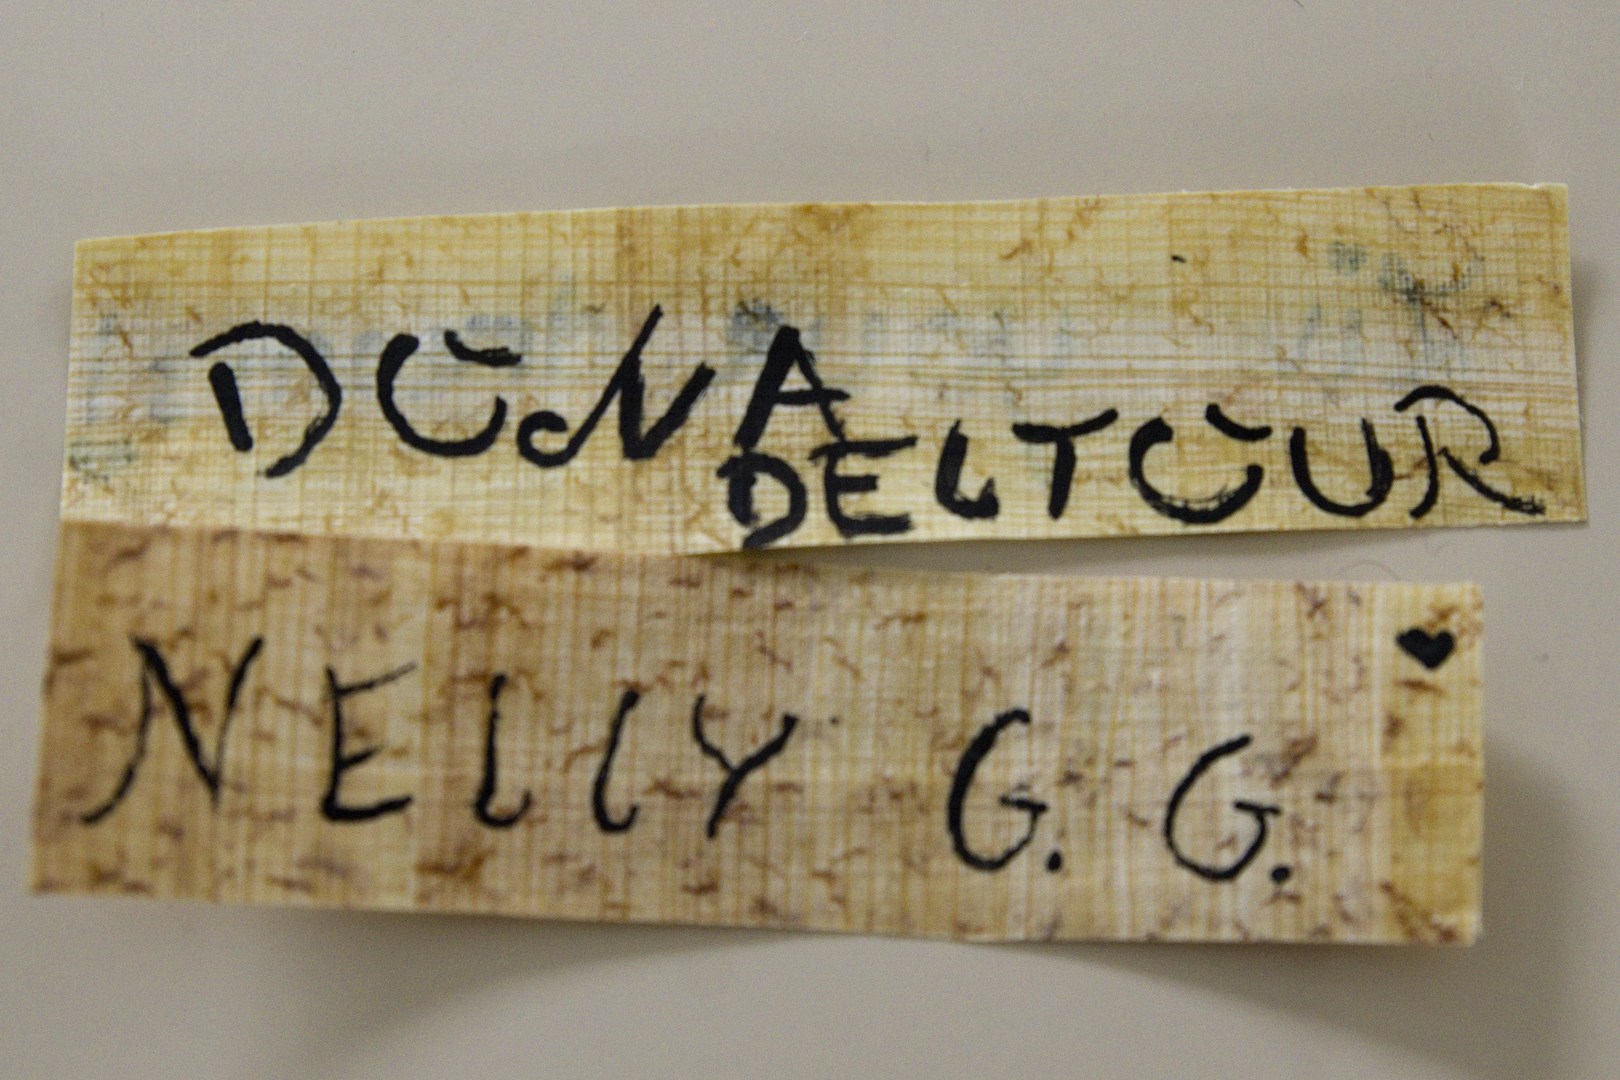 DONA
DELTOUR
NELLY G. G.